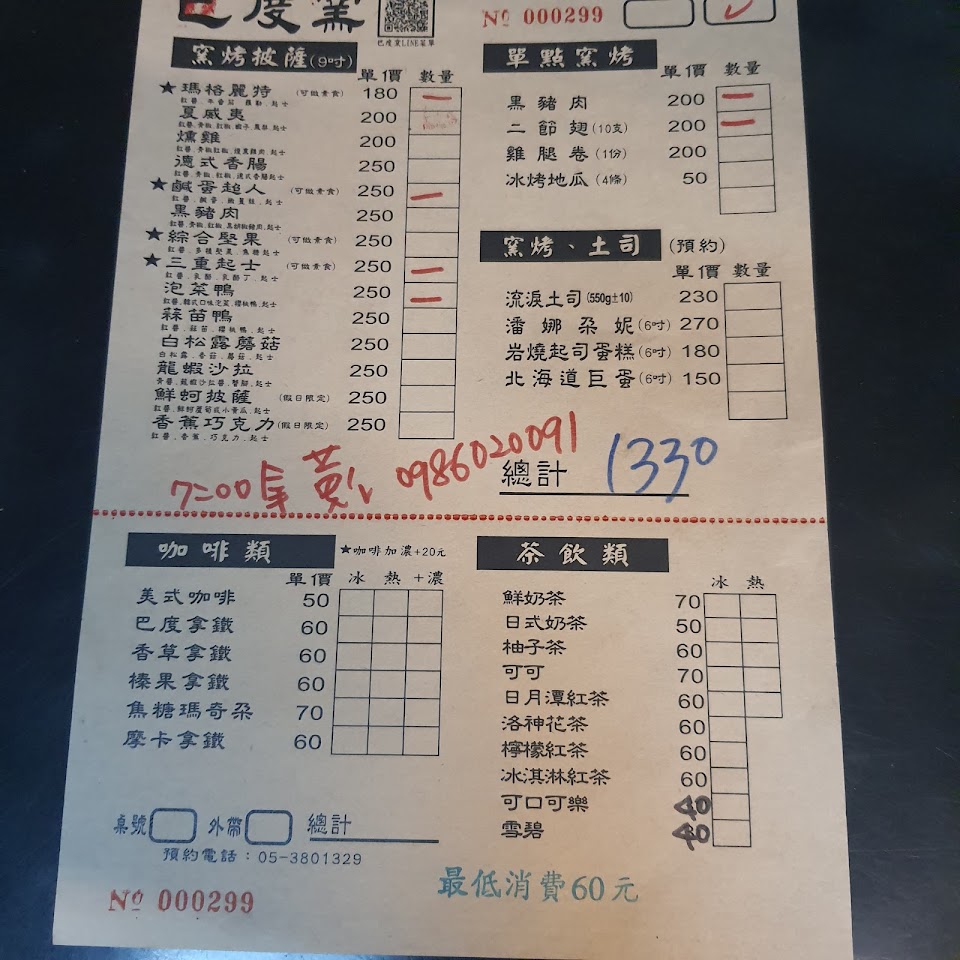 巴度窯
巴度窯LINE菜單
Nº 000299
窯烤披薩(9吋)
單價 數量
★瑪格麗特 (可做素食) 180 一
紅醬、牛番茄、羅勒、起士
夏威夷 200
燻雞 200
德式香腸 250
★鹹蛋超人 (可做素食) 250 一
黑豬肉 250
★綜合堅果 (可做素食) 250
紅醬、多種堅果、焦糖起士
★三重起士 (可做素食) 250 一
紅醬、乳酪、乳酪丁、起士
泡菜鴨 250 一
紅醬、韓式口味泡菜、櫻桃鴨、起士
蒜苗鴨 250
紅醬、蒜苗、櫻桃鴨、起士
白松露蘑菇 250
白松露、香菇、蘑菇、起士
龍蝦沙拉 250
鮮蚵披薩 (假日限定) 250
香蕉巧克力(假日限定) 250
紅醬、香蕉、巧克力、起士
單點窯烤
單價 數量
黑豬肉 200 一
二節翅(10支) 200 一
雞腿卷(1份) 200
冰烤地瓜(4條) 50
窯烤、土司 (預約)
單價 數量
流淚土司(550g±10) 230
潘娜朵妮(6吋) 270
岩燒起司蛋糕(6吋) 180
北海道巨蛋(6吋) 150
7:00 拿 黃 0986020091
總計 1330
咖啡類 ★咖啡加濃+20元
單價 冰 熱 +濃
美式咖啡 50
巴度拿鐵 60
香草拿鐵 60
榛果拿鐵 60
焦糖瑪奇朵 70
摩卡拿鐵 60
茶飲類
冰 熱
鮮奶茶 70
日式奶茶 50
柚子茶 60
可可 70
日月潭紅茶 60
洛神花茶 60
檸檬紅茶 60
冰淇淋紅茶 60
可口可樂
雪碧
桌號 外帶 總計
預約電話：05-3801329
最低消費60元
Nº 000299